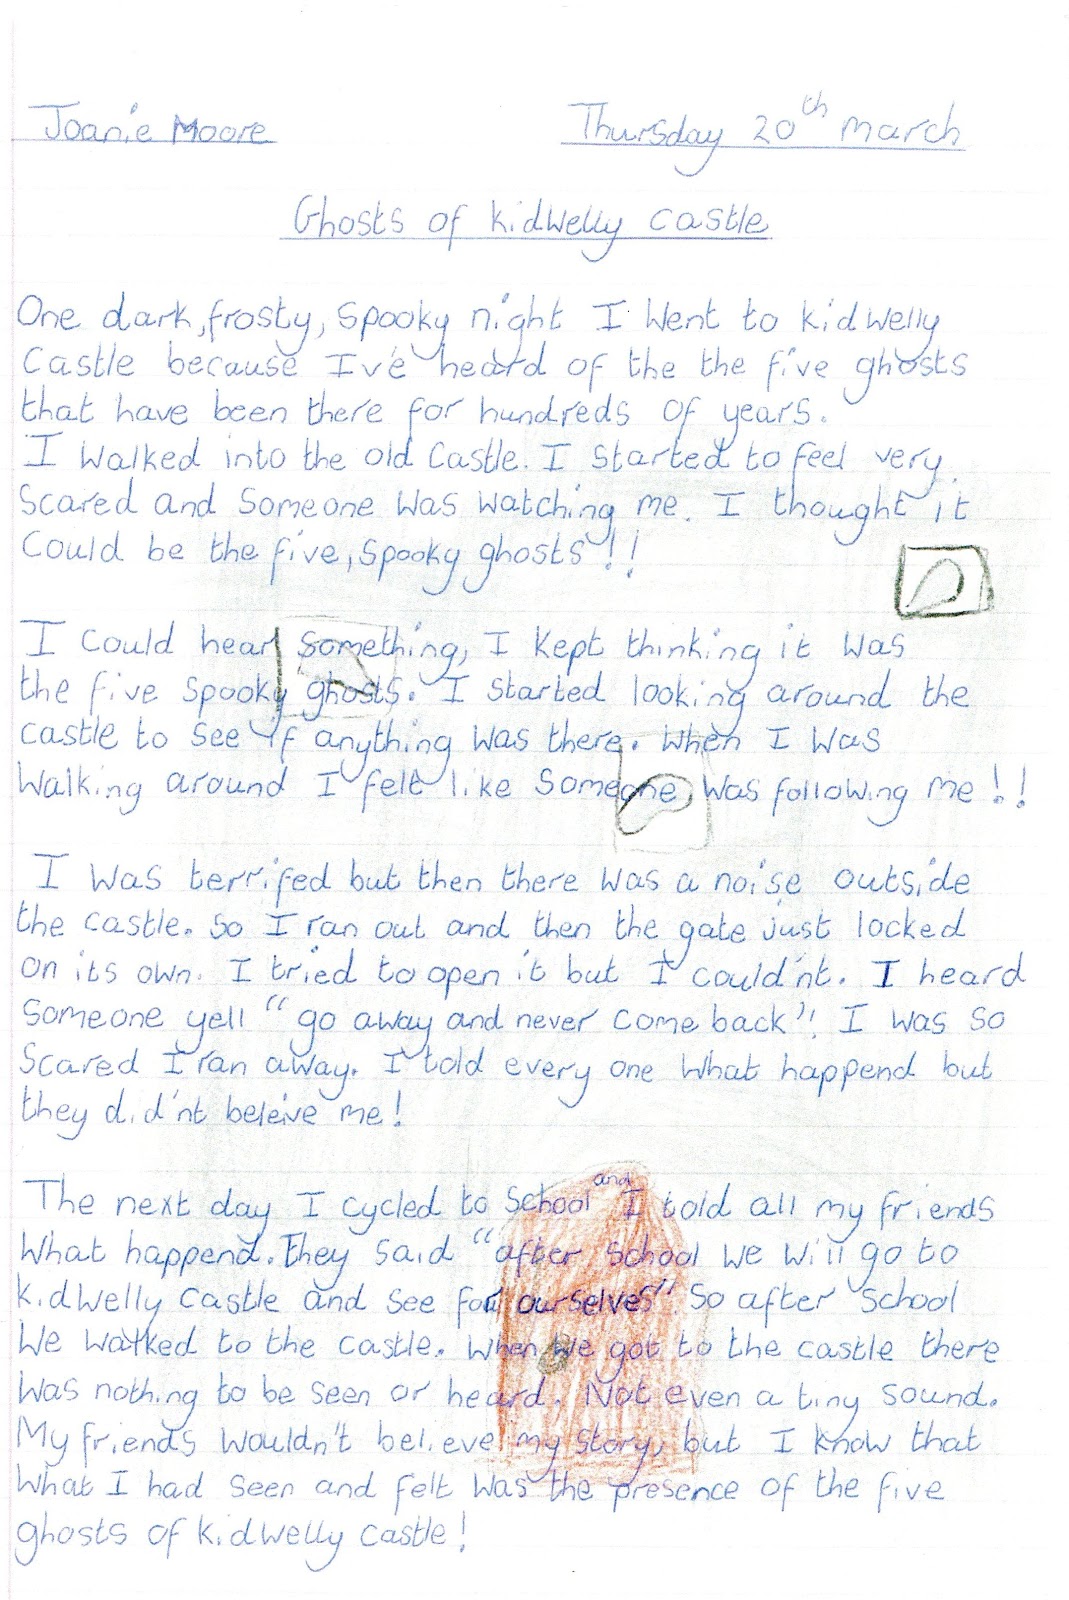 Joanie Moore Thursday 20th March
Ghosts of kidwelly castle
One dark, frosty, spooky night I went to kidwelly
Castle because I've heard of the the five ghosts
that have been there for hundreds of years.
I walked into the old Castle. I started to feel very
scared and someone was watching me. I thought it
could be the five, spooky ghosts!!
I could hear something, I kept thinking it was
the five spooky ghosts. I started looking around the
castle to see if anything was there. When I was
walking around I felt like someone was following me!!
I was terrifed but then there was a noise outside
the castle. so I ran out and then the gate just locked
on its own. I tried to open it but I could'nt. I heard
someone yell "go away and never come back"! I was so
scared I ran away. I told every one what happend but
they did'nt beleive me!
The next day I cycled to school and I told all my friends
what happend. They said "after school we will go to
kidwelly castle and see for ourselves". So after school
we walked to the castle. When we got to the castle there
was nothing to be seen or heard. Not even a tiny sound.
My friends wouldn't believe my story, but I know that
what I had seen and felt was the presence of the five
ghosts of kidwelly castle!